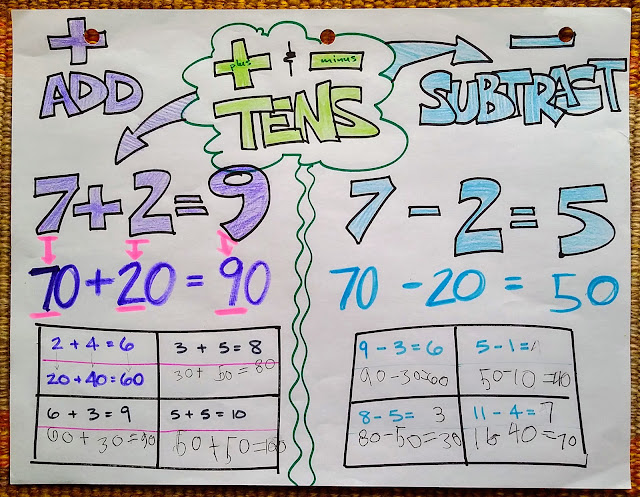 +
ADD
+ plus & - minus
TENS
−
SUBTRACT
7+2=9
70+20=90
2+4=6
20+40=60
3+5=8
30+50=80
6+3=9
60+30=90
5+5=10
50+50=100
7-2=5
70-20=50
9-3=6
90-30=60
5-1=
50-10=40
8-5=3
80-50=30
11-4=7
-40=70